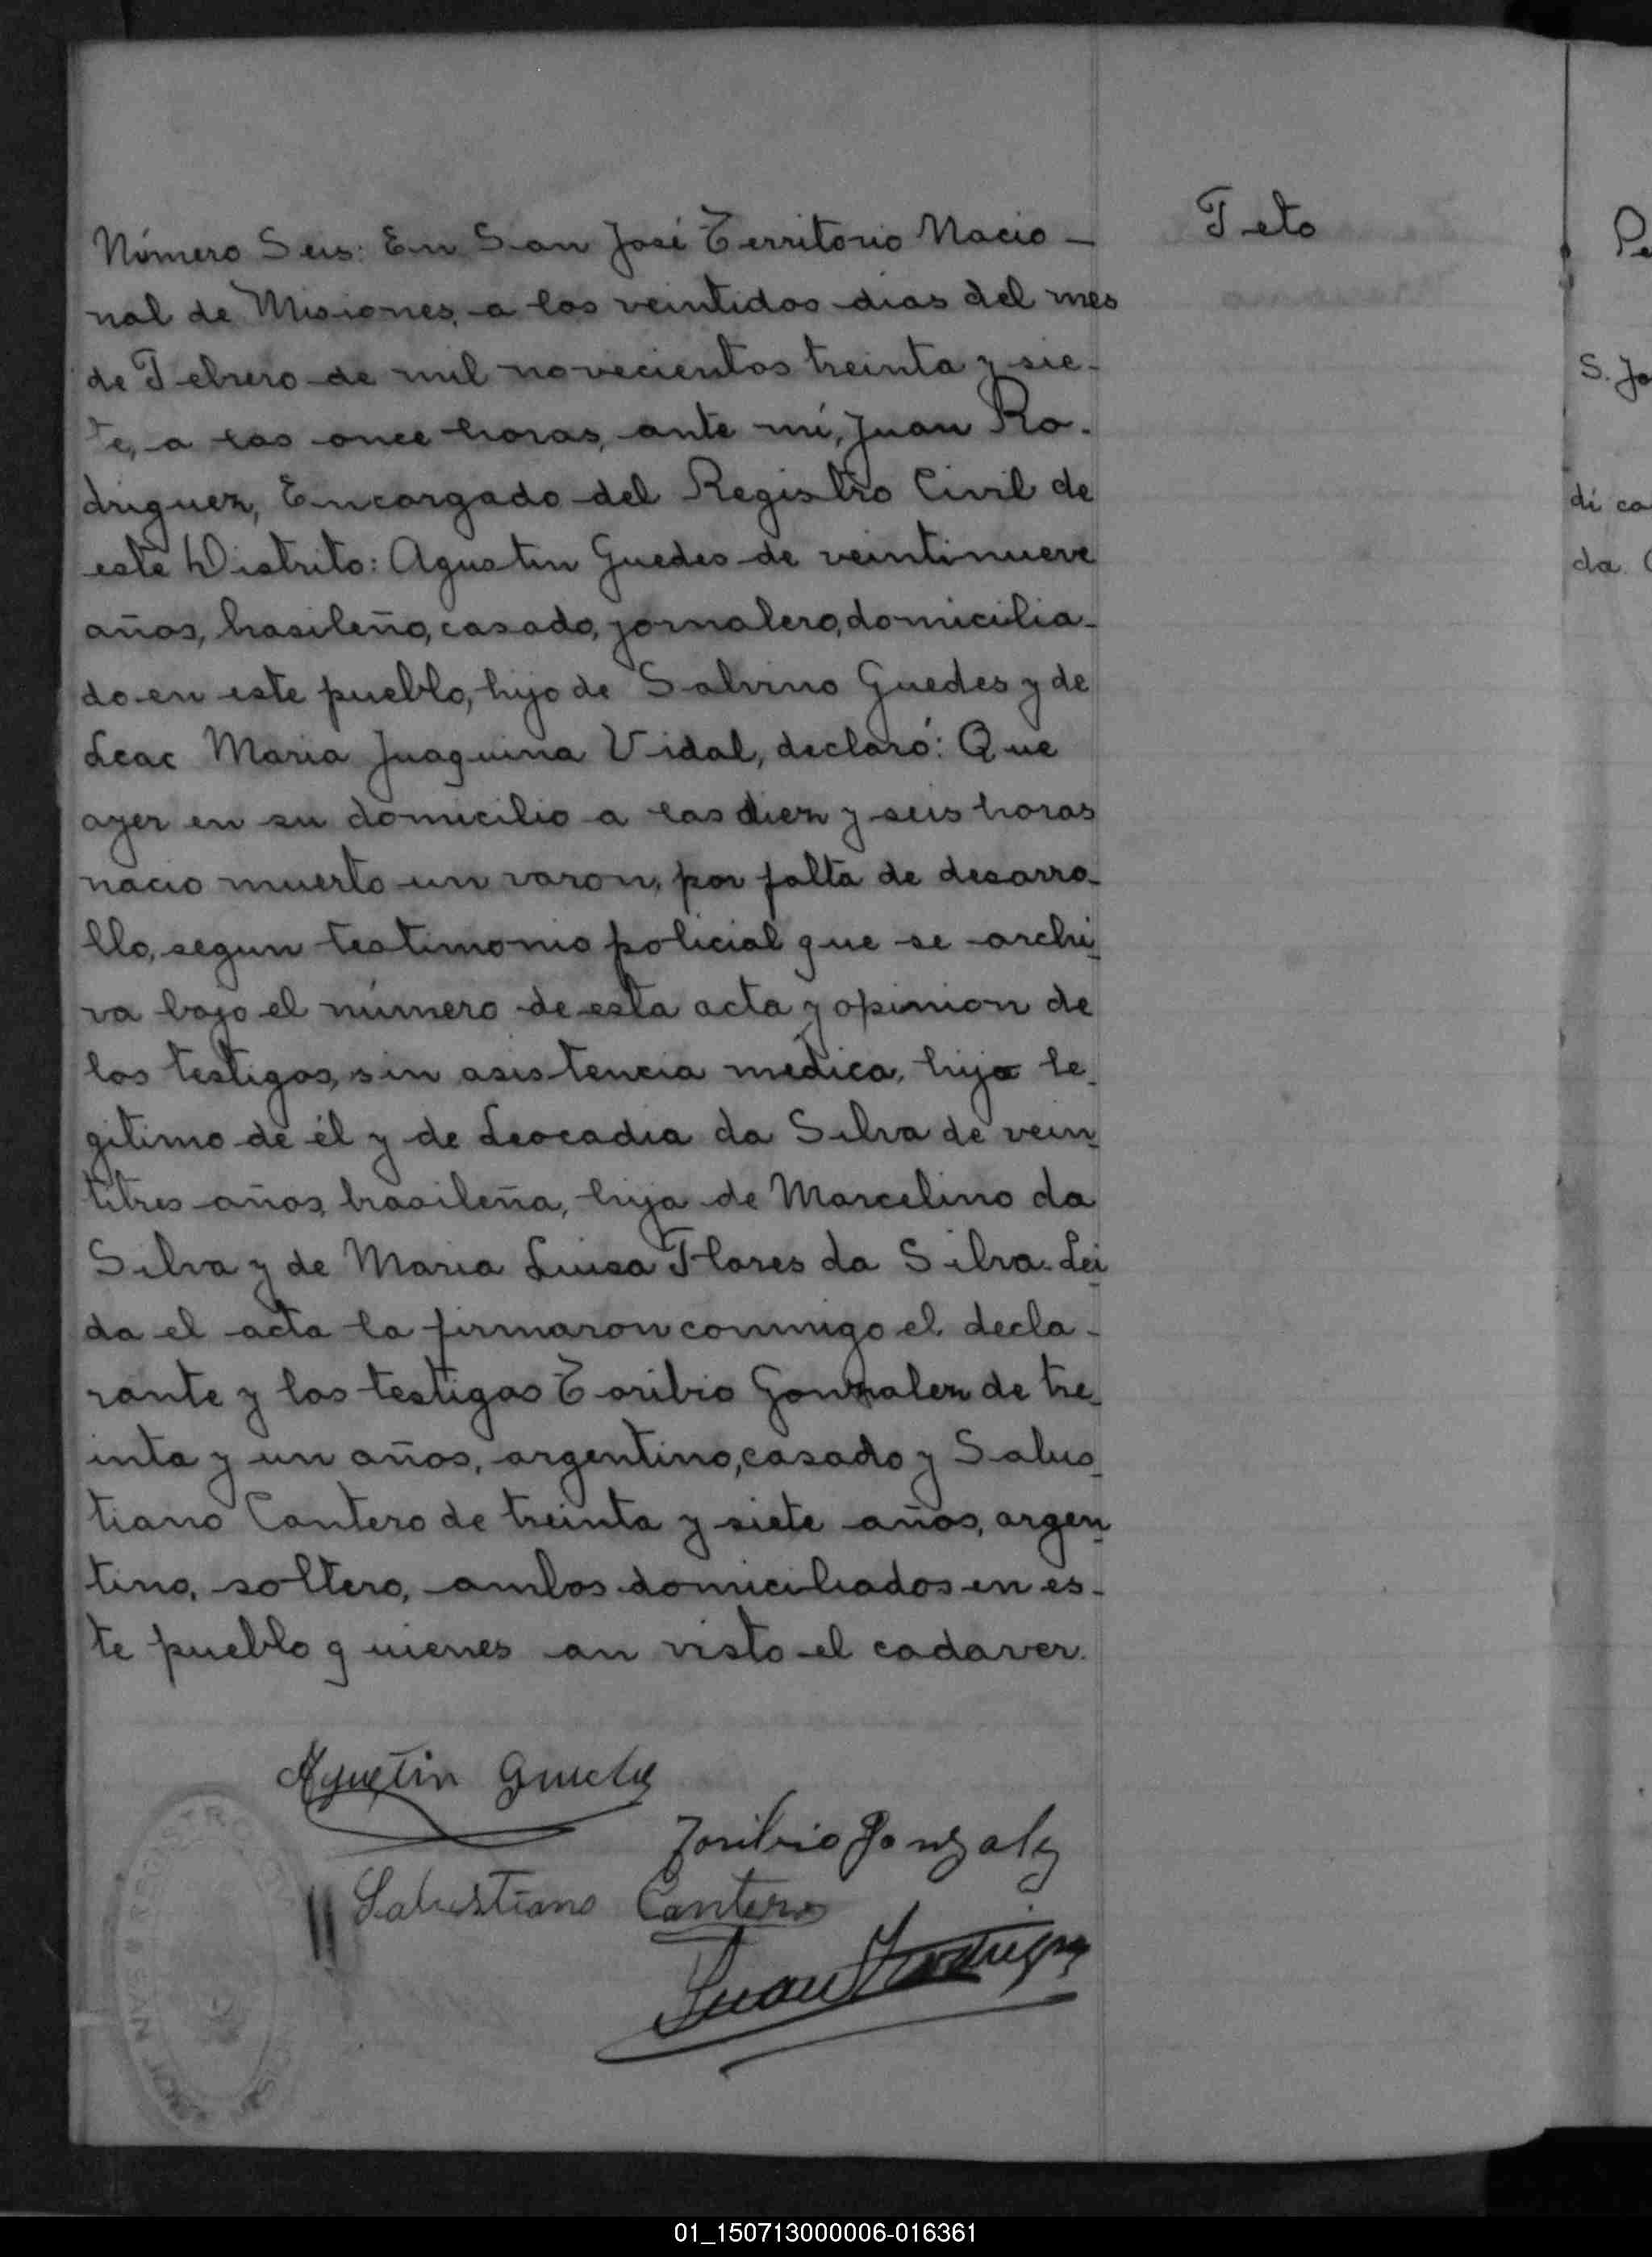 Número Seis: En San José Territorio Nacio-
nal de Misiones, a los veintidos dias del mes
de Febrero de mil novecientos treinta y sie-
te, a las once horas, ante mí, Juan Ro-
driguez, Encargado del Registro Civil de
este Distrito: Agustin Guedes de veintinueve
años, brasileño, casado, jornalero, domicilia-
do en este pueblo, hijo de Salvino Guedes y de
Leac Maria Juaquina Vidal, declaró: Que
ayer en su domicilio a las diez y seis horas
nacio muerto un varon, por falta de desarro-
llo, segun testimonio policial que se archi-
va bajo el número de esta acta y opinion de
los testigos, sin asistencia medica, hijo le-
gitimo de él y de Leocadia da Silva de vein-
titres años, brasileña, hija de Marcelino da
Silva y de Maria Luisa Flores da Silva. Lei-
da el acta la firmaron conmigo el decla-
rante y los testigos Toribio Gonzalez de tre-
inta y un años, argentino, casado y Salus-
tiano Cantero de treinta y siete años, argen-
tino, soltero, ambos domiciliados en es-
te pueblo quienes an visto el cadaver.
Feto
Agustin Guedes
Toribio Gonzalez
Salustiano Cantero
Juan Rodriguez
REGISTRO CIVIL
SAN JOSE
Pe
S. Jo
di ca
da
01_150713000006-016361